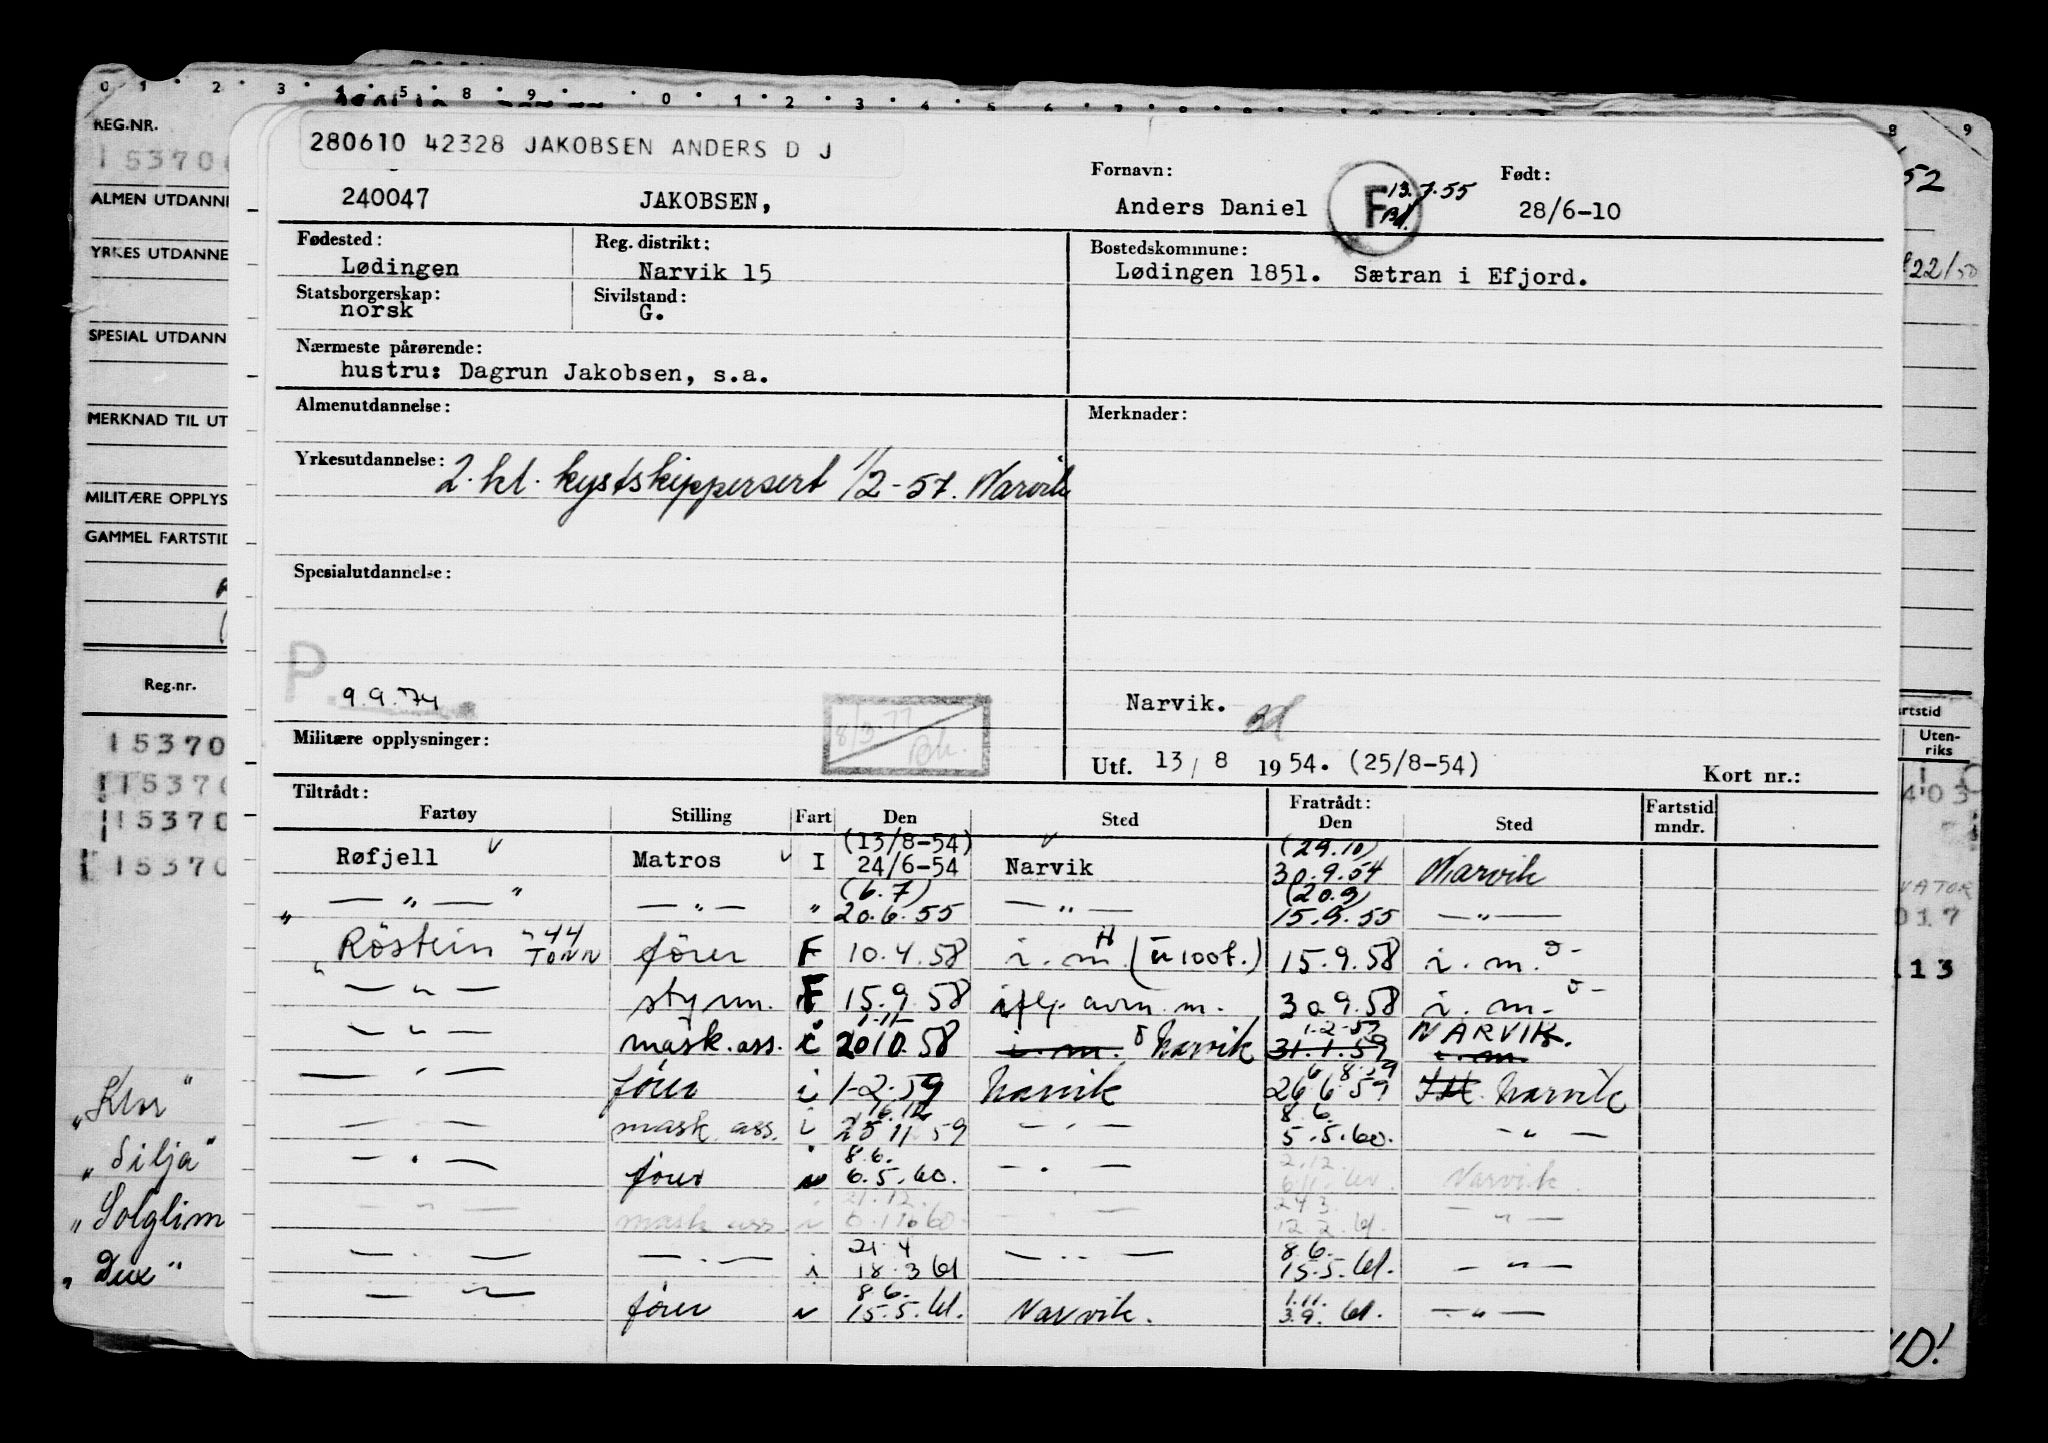 0 1 2 3 4 5 8 9 0 1 2 3 4 5 6 7 8 9 8 9
REG.NR.
15370
ALMEN UTDANNE
YRKES UTDANNE
SPESIAL UTDANN
MERKNAD TIL UT
MILITÆRE OPPLYS
GAMMEL FARTSTID
Reg.nr.
15370
15370
15370
15370
„Klar"
„Silja"
„Solglim
„Dux"
280610 42328 JAKOBSEN ANDERS D J
240047 JAKOBSEN,
Fornavn:
Anders Daniel
F 13.7.55
Bd.
Født:
28/6-10
Fødested:
Lødingen
Reg. distrikt:
Narvik 15
Bostedskommune:
Lødingen 1851. Sætran i Efjord.
Statsborgerskap:
norsk
Sivilstand:
G.
Nærmeste pårørende:
hustru: Dagrun Jakobsen, s.a.
Almenutdannelse:
Merknader:
Yrkesutdannelse: 2. kl. kystskippersert 1/2-57. Narvik
Spesialutdannelse:
P.
9.9.74
8/3 77
Narvik.
Militære opplysninger:
Utf. 13/8 1954. (25/8-54)
Kort nr.:
Tiltrådt: Fratrådt:
Fartøy Stilling Fart Den Sted Den Sted Fartstid mndr.
(13/8-54) (29.10)
Røfjell Matros I 24/6-54 Narvik 30.9.54 Narvik
(6.7) (20.9)
" — " — — " — " 20.6.55 — " — 15.9.55 — " —
Röstein 44 TONN fører F 10.4.58 i. m. H (u 100t.) 15.9.58 i. m.
— " — styrm. F 15.9.58 m. 30.9.58 i. m.
1.11 1.2.59
— " — mask. ass. i 20.10.58 i. m. Narvik 31.1.59 NARVIK. i. m.
6.8.59
— " — fører i 1-2-59 Narvik 26.6.59 Narvik
16.12 8.6.
— " — mask. ass. i 25.11.59 — " — 5.5.60. — " —
8.6. 2.12.
— " — fører i 6.5.60. — " — 6.11. Narvik.
21.12. 24.3.
— " — mask ass. i 60 — " — 12.2.61. — " —
21.4 8.6.
— " — — " — i 18.3.61 — " — 15.5.61. — " —
8.6. 1.11.
— " — fører i 15.5.61. Narvik. 3.9.61. — " —
52
822/50
rtstid
Uten-
riks
403
VATOR
017
113
D!